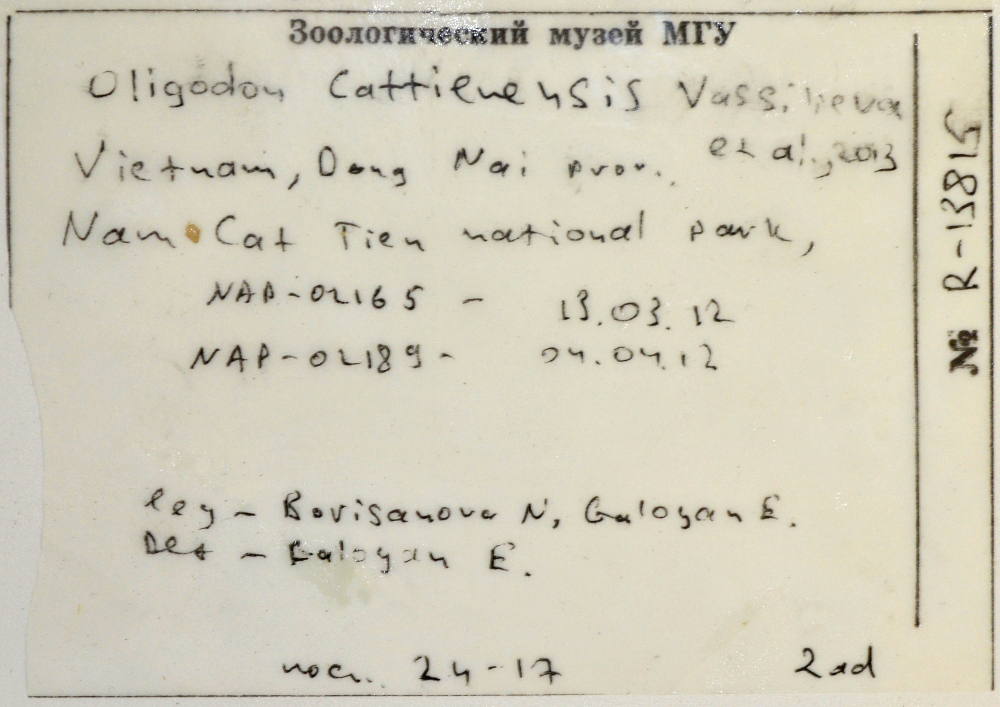 Зоологический музей МГУ
Oligodon Cattienensis Vassilieva
et al., 2013
Vietnam, Dong Nai prov.
Nam Cat Tien national park,
NAP-02165 - 13.03.12
NAP-02189 - 04.04.12
leg - Borisanova N, Galoyan E.
Det - Galoyan E.
пост. 24-17 2ad
№ R-13815